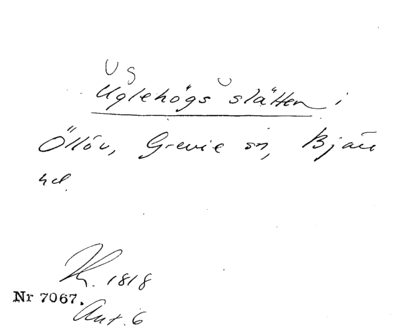 Ug
Uglehögs slätten i
Öllöv, Grevie sn, Bjäre
hd.
K. 1818
Nr 7067.
Akt. 6